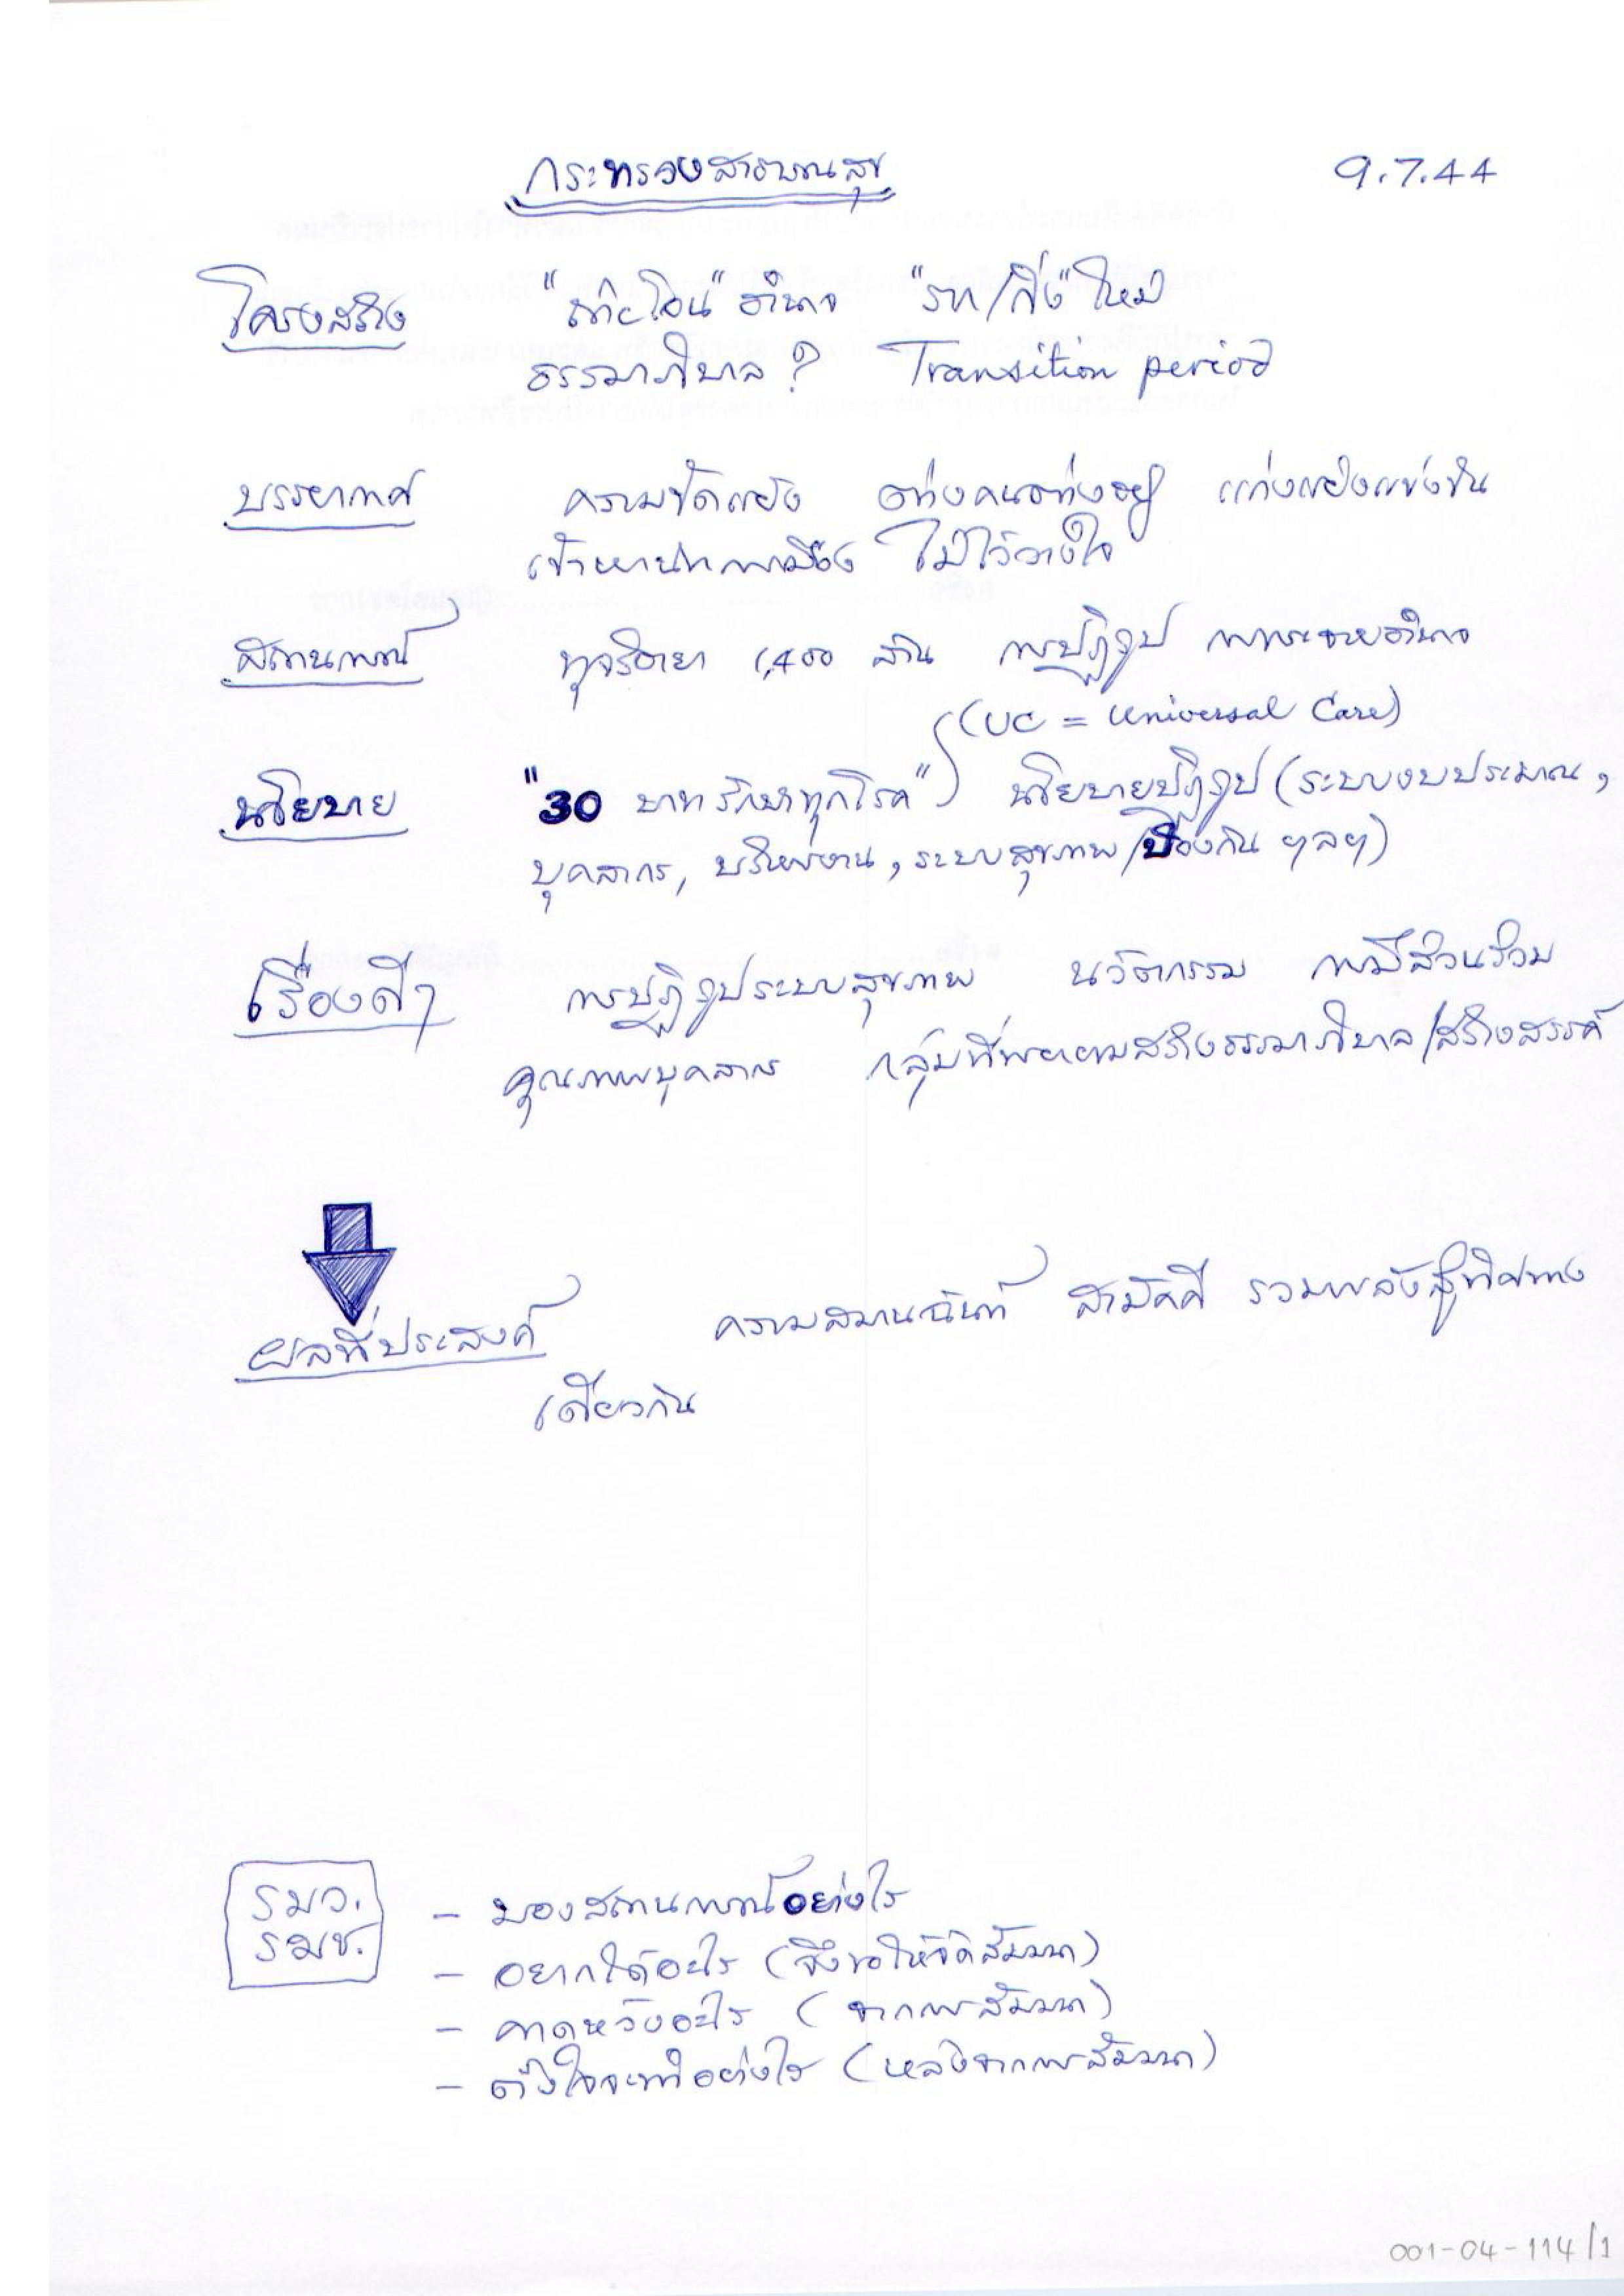 กระทรวงสาธารณสุข 9.7.44
โครงสร้าง "ถ่ายโอน" อำนาจ "ราก/กิ่ง" ใหม่
ธรรมาภิบาล? Transition period
บรรยากาศ ความขัดแย้ง ต่างคนต่างอยู่ แก่งแย่งแข่งขัน
เข้าหานักการเมือง ไม่ไว้วางใจ
สถานการณ์ ทุจริตยา 1,400 ล้าน การปฏิรูป การกระจายอำนาจ
(UC = Universal Care)
นโยบาย "30 บาทรักษาทุกโรค" นโยบายปฏิรูป (ระบบงบประมาณ,
บุคลากร, บริหารงาน, ระบบสุขภาพ/ป้องกัน ฯลฯ)
เรื่องดีๆ การปฏิรูประบบสุขภาพ นวัตกรรม การมีส่วนร่วม
คุณภาพบุคลากร กลุ่มที่พยายามสร้างธรรมาภิบาล/สร้างสรรค์
ผลที่ประสงค์ ความสมานฉันท์ สามัคคี รวมพลังสู่ทิศทาง
เดียวกัน
รมว.
รมช.
- มองสถานการณ์อย่างไร
- อยากได้อะไร (จึงขอให้จัดสัมมนา)
- คาดหวังอะไร (จากการสัมมนา)
- ตั้งใจจะทำอย่างไร (หลังจากการสัมมนา)
001-04-114/1